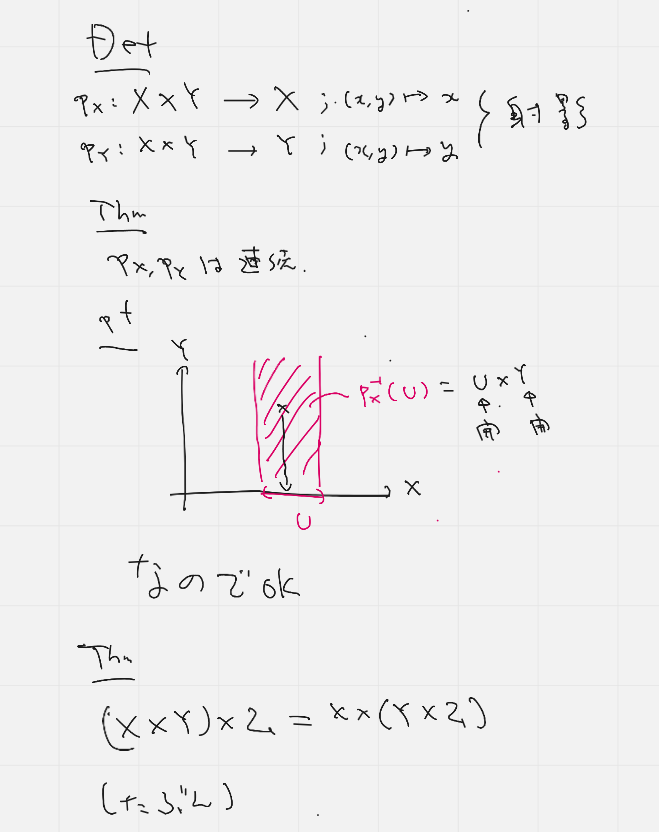 Def
p_X : X × Y → X ; (x, y) ↦ x
p_Y : X × Y → Y ; (x, y) ↦ y
射影
Thm
p_X, p_Y は連続.
pf
Y
p_X^{-1}(U) = U × Y
開 開
X
U
なので ok
Thm
(X × Y) × Z = X × (Y × Z)
(たぶん)